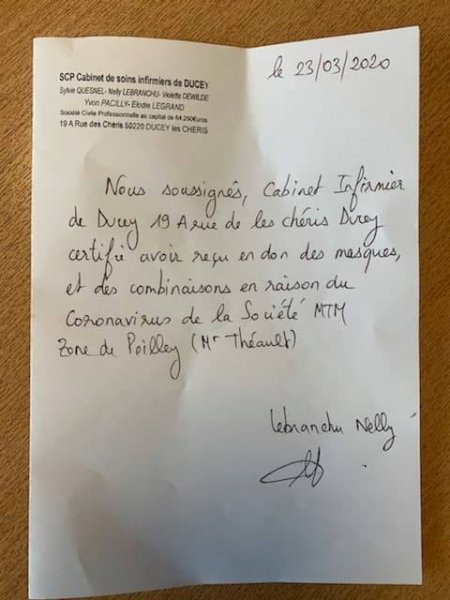 SCP Cabinet de soins infirmiers de DUCEY
Sylvie QUESNEL- Nelly LEBRANCHU- Violette DEWILDE
Yvon PACILLY- Elodie LEGRAND
Société Civile Professionnelle au capital de 54.250Euros
19 A Rue des Chéris 50220 DUCEY les CHERIS
le 23/03/2020
Nous soussignés, Cabinet Infirmier
de Ducey 19 A rue de les chéris Ducey
certifie avoir reçu en don des masques,
et des combinaisons en raison du
Coronavirus de la Société MTM
Zone de Poilley (Mr Théault)
Lebranchu Nelly